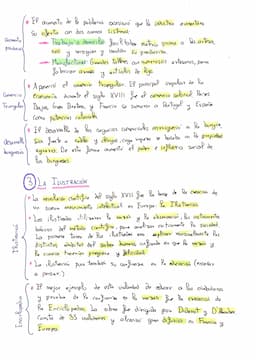 • El aumento de la población ocasionó que la industria aumentara
su oferta con dos nuevos sistemas:
→ Trabajo a domicilio: facilitaban materia prima a los
y recogían y vendían la producción.
→ Manufacturas: Grandes talleres con numerosos artesanos, para
fabricar armas y artículos de lujo.
Comercio
Triangular
• Apareció el comercio triangular. El principal impulsor de la
economía durante el siglo XVIII fue el comercio colonial. Países
Bajos, Gran Bretaña y Francia se sumaron a Portugal y España
como potencias coloniales.
desarrollo
burguesía
• El desarrollo de los negocios comerciales enriqueció a la burguesía
frente a nobleza y clero, cuya riqueza se basaba en la propiedad
De esta forma aumentó el poder e influencia social de
los burgueses.
3 LA ILUSTRACIÓN
Ilustración
• La revolución científica del siglo XVII fue la base de la creación de
un nuevo movimiento intelectual en Europa: La Ilustración.
• Los ilustrados utilizaron la razón y la observación, los instrumentos
básicos del método científico, para analizar críticamente la sociedad.
La primera tarea de los ilustrados era explicar racionalmente los
distintos ámbitos del saber humano, confiando en que la razón y
la ciencia traerían progreso y felicidad.
• La Ilustración puso también su confianza en la educación (enseñar
a pensar).
Enciclopedia
• El mejor ejemplo de esta voluntad de educar a los ciudadanos
y prueba de la confianza en la razón fue la creación de
la Enciclopedia. La obra fue dirigida por Diderot y D'Alembert
Consta de 35 volúmenes y alcanzó gran difusión en Francia y
Europa.